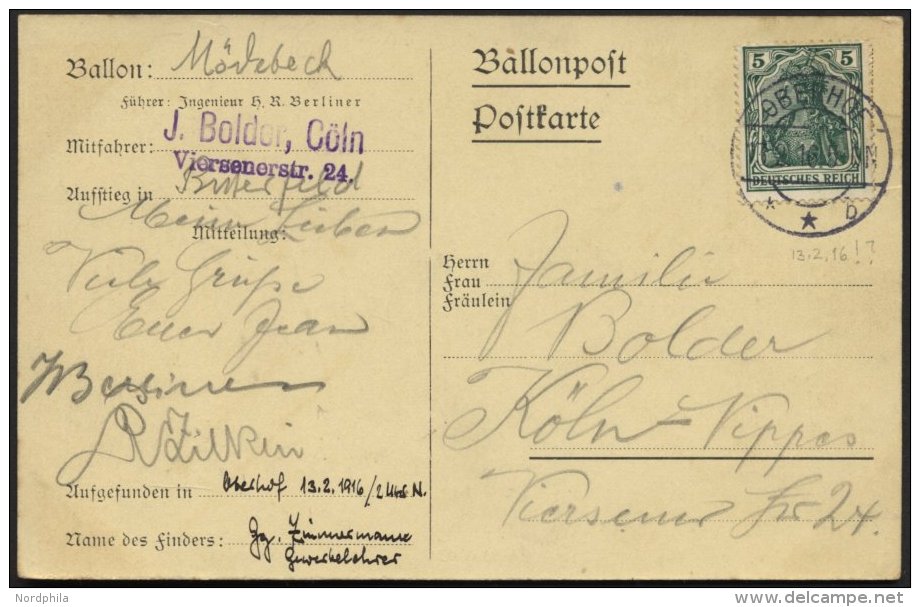 Ballon: Mödebeck
Führer: Ingenieur H. R. Berliner
J. Bolder, Cöln
Mitfahrer:
Viersenerstr. 24.
Aufstieg in Bitterfeld
Meine Lieben
Mitteilung:
Viele Grüße
Euer Jean
HBerliner
Aufgefunden in Oberhof 13.2.1916/2 Uhr N.
Name des Finders: Zimmermann
Gewerbelehrer
Ballonpost
Postkarte
5 5
OBERHOF
DEUTSCHES REICH
* ★ b
13.2.16!?
Herrn
Frau
Fräulein
Familie
Bolder
Köln-Nippes
Viersener Str 24.
Nordphila
delcampe.net